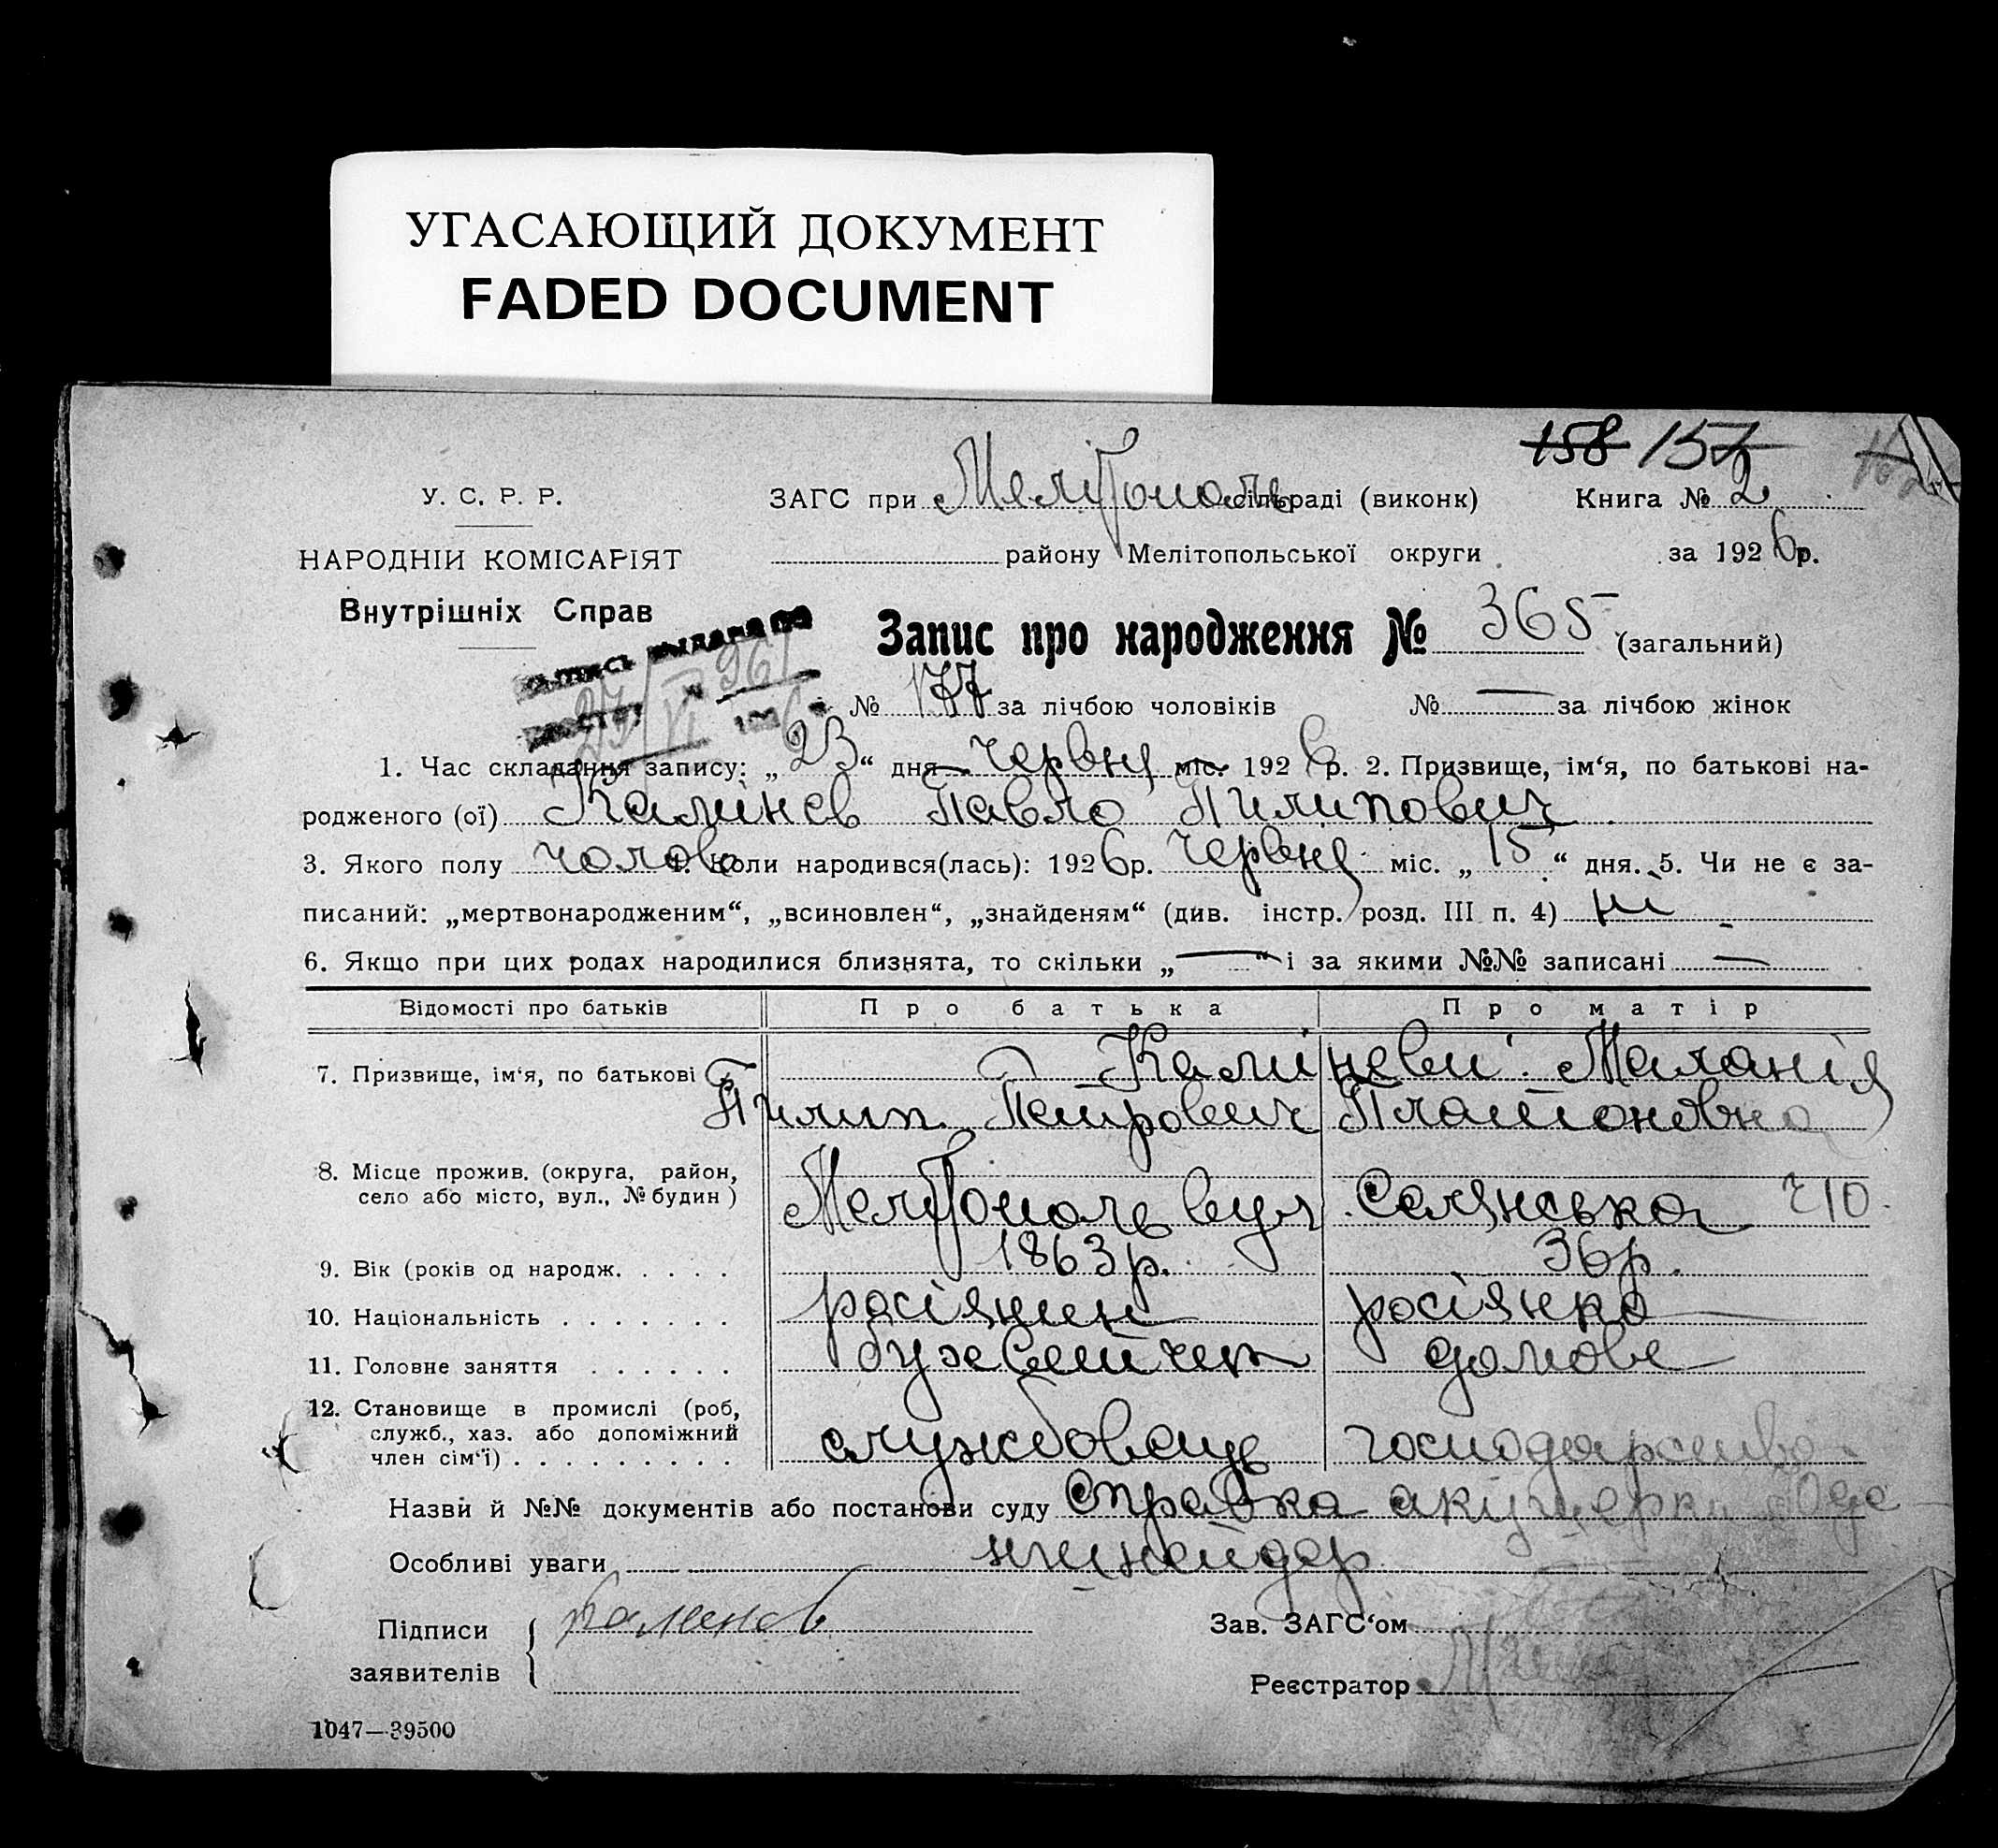 УГАСАЮЩИЙ ДОКУМЕНТ
FADED DOCUMENT
158 157
У. С. Р. Р.
ЗАГС при Мелітополь сільраді (виконк) Книга № 2
НАРОДНІЙ КОМІСАРІЯТ
району Мелітопольської округи за 1926р.
Внутрішніх Справ
Запис про народження № 365 (загальний)
№ 177 за лічбою чоловіків № — за лічбою жінок
1. Час складання запису: „23“ дня червня міс. 1926р. 2. Призвище, ім'я, по батькові на-
родженого (ої) Калінєв Павло Пилипович
3. Якого полу чолов 4. Коли народився(лась): 1926р. червня міс. „15“ дня. 5. Чи не є за-
писаний: „мертвонародженим“, „всиновлен“, „знайденям“ (див. інстр. розд. III п. 4) ні
6. Якщо при цих родах народилися близнята, то скільки „—“ і за якими №№ записані —
Відомості про батьків Про батька Про матір
7. Призвище, ім'я, по батькові Калінєви Маланія
Пилип Петрович Платоновна
8. Місце прожив. (округа, район,
село або місто, вул., № будин) Мелітополь вул. Селянська ч10.
9. Вік (років од народж. 1863р. 36р.
10. Національність росіянин росіянка
11. Головне заняття домове
12. Становище в промислі (роб,
служб., хаз. або допоміжний
член сім'ї) службовець господарство
Назви й №№ документів або постанови суду Справка акушерки
Особливі уваги
Підписи
заявителів
Зав. ЗАГС'ом
Реєстратор
1047—39500